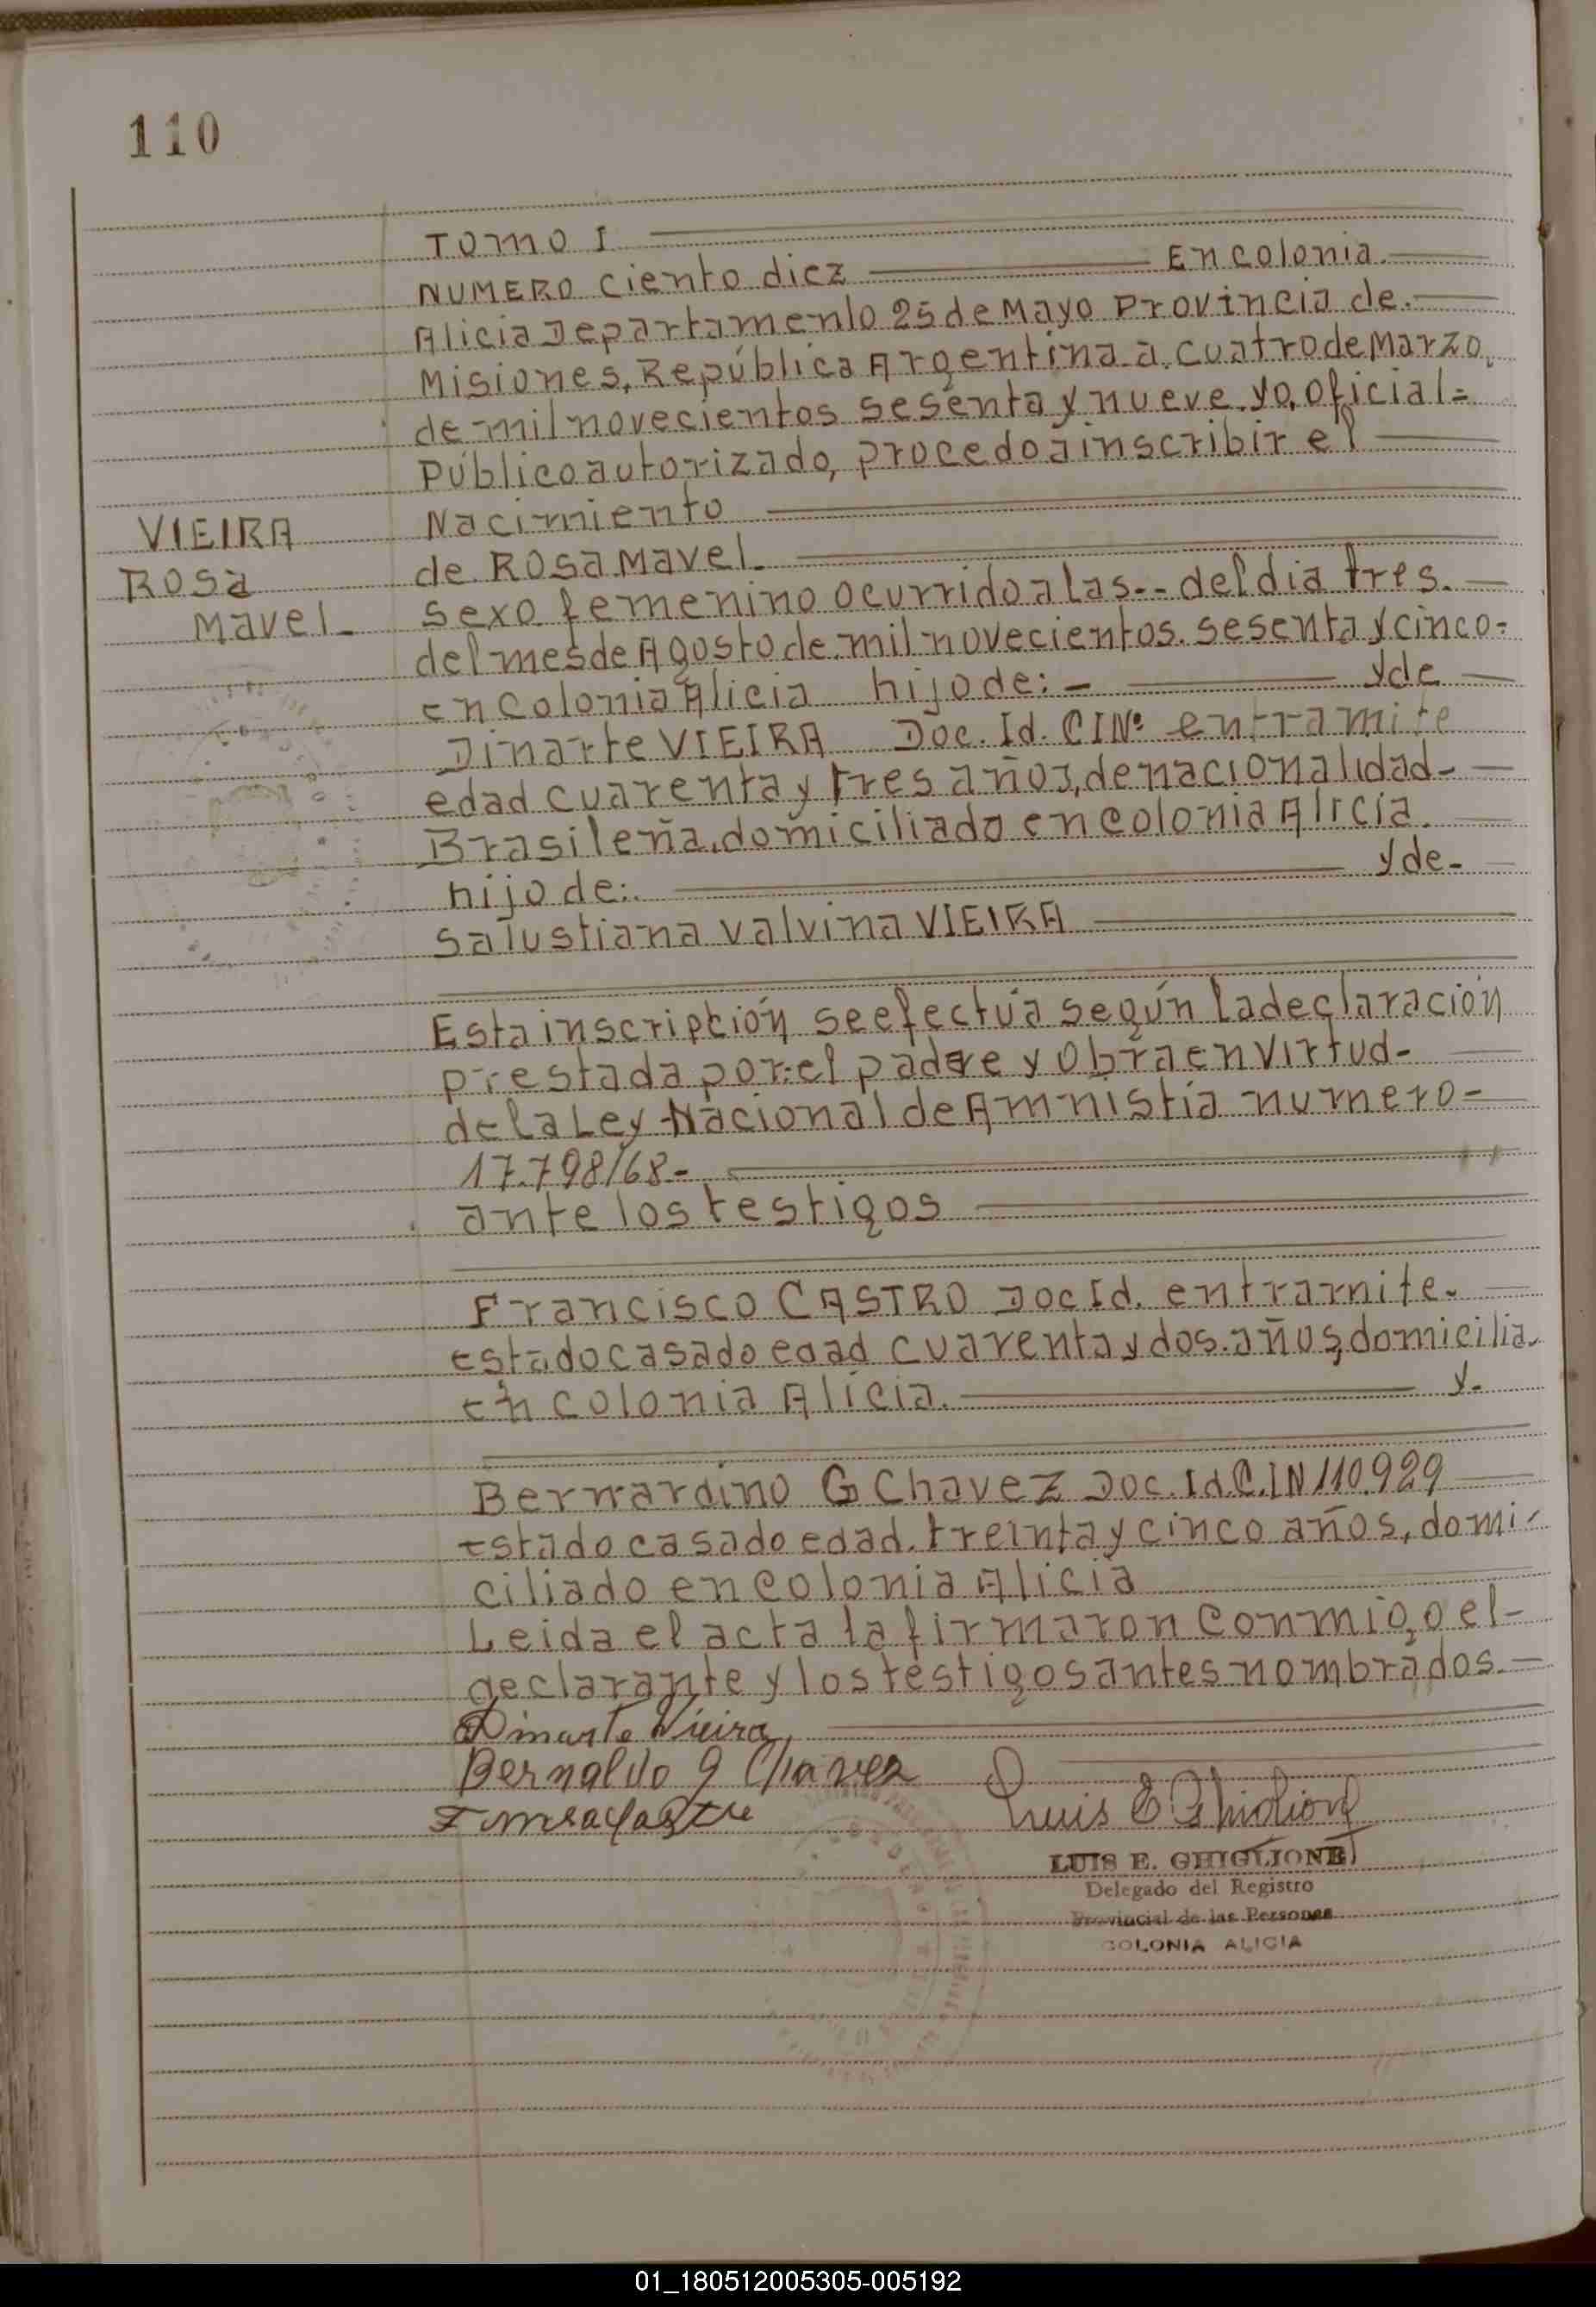 110
TOMO I
NUMERO Ciento diez En colonia
Alicia Departamento 25 de Mayo Provincia de.
Misiones, República Argentina a cuatro de Marzo
de mil novecientos sesenta y nueve, yo, oficial=
Público autorizado, procedo a inscribir el
VIEIRA Nacimiento
Rosa de Rosa Mavel
Mavel sexo femenino ocurrido a las -- del dia tres.
del mes de Agosto de mil novecientos sesenta y cinco=
en Colonia Alicia hijo de: y de
Dinarte VIEIRA Doc. Id. CI Nº en tramite
edad cuarenta y tres años, de nacionalidad-
Brasileña, domiciliado en Colonia Alicia.
hijo de: y de-
Salustiana Valvina VIEIRA
Esta inscripción se efectúa según la declaración
prestada por: el padre y obra en virtud-
de la Ley Nacional de Amnistía numero-
17.798/68-
ante los testigos
Francisco CASTRO Doc Id. en tramite.
estado casado edad cuarenta y dos años, domicilia
en colonia Alicia. y.
Bernardino G Chavez Doc. Id. C.I N 110.929
estado casado edad. treinta y cinco años, domi-
ciliado en Colonia Alicia
Leida el acta la firmaron conmigo el-
declarante y los testigos antes nombrados.
Dinarte Vieira
Bernaldo G Chavez
Luis E Ghiglione
LUIS E. GHIGLIONE
Delegado del Registro
Provincial de las Personas
COLONIA ALICIA
01_180512005305-005192